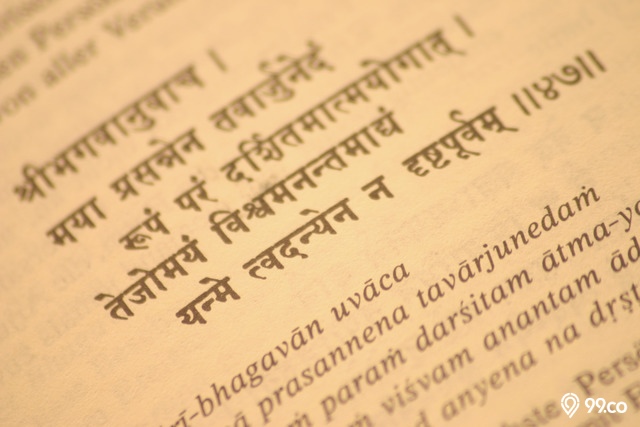 en Persö
on aller
श्रीभगवानुवाच ।
मया प्रसन्नेन तवार्जुनेदं
रूपं परं दर्शितमात्मयोगात् ।
तेजोमयं विश्वमनन्तमाद्यं
यन्मे त्वदन्येन न दृष्टपूर्वम् ॥४७॥
rī-bhagavān uvāca
ā prasannena tavārjunedaṁ
ṁ paraṁ darśitam ātma-yo
m viśvam anantam ād
d anyena na dṛṣṭ
ste Persö
99.co